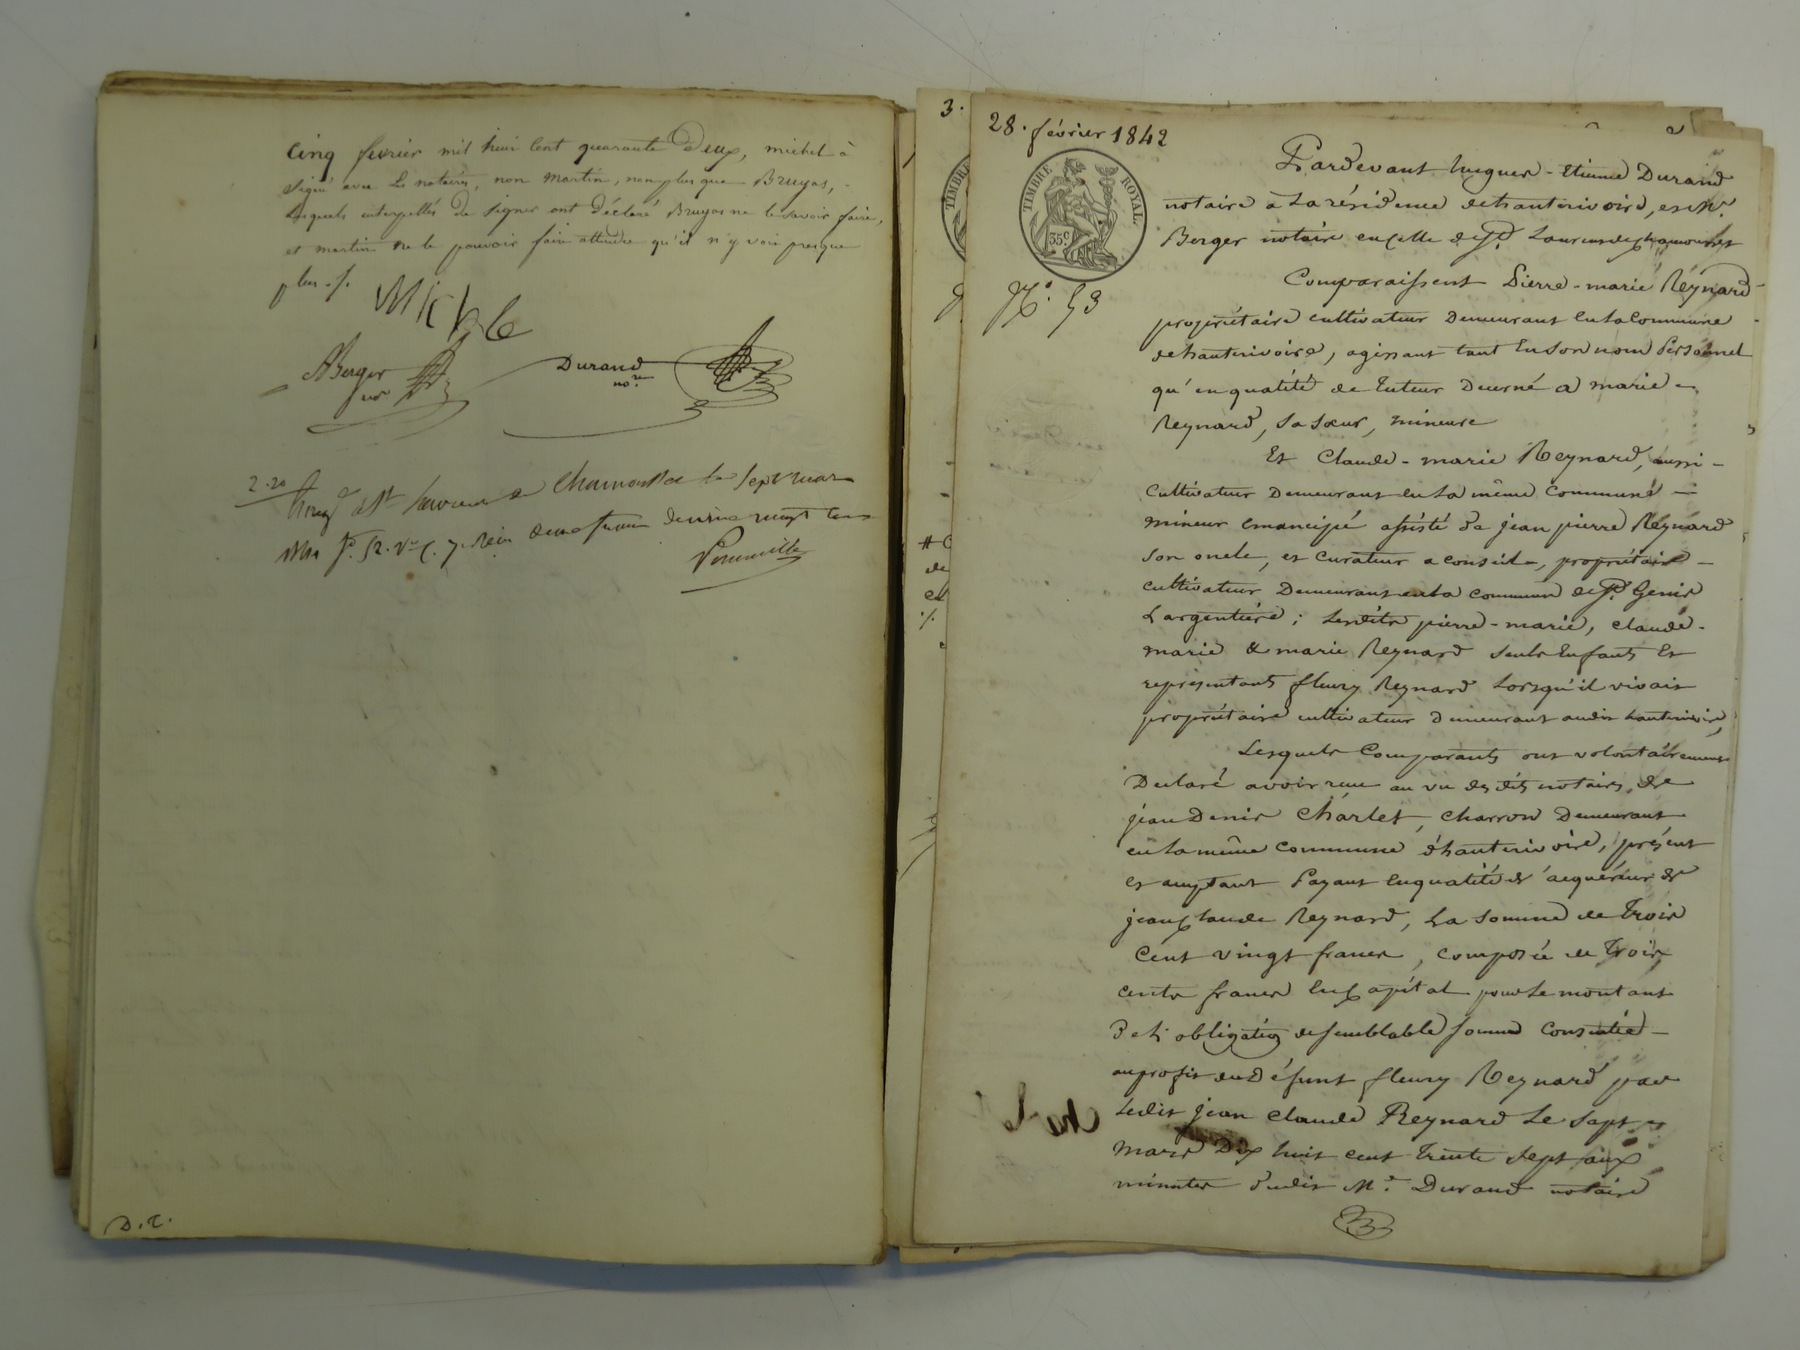 cinq fevrier mil huit cent quarante Deux, michel à
signé avec Les notaires, non martin, non plus que Bruyas,
lesquels interpellés de signer ont déclaré Bruyas ne le savoir faire,
et martin ne le pouvoir faire attendu qu'il n'y voit presque
plus ./.
Michle
ABerger
nore
Durand
nore
2.20
Enreg à St Laurent de Chamousset le sept mars
1842 fo. 52. Vo C. 7. Reçu deux francs deux vingt
D.T.
3.
28. février 1842
TIMBRE ROYAL
35 C
No. 53
Pardevant hugues-Etienne Durand
notaire à La résidence dehauterivoire, et Me.
Berger notaire en celle de St. Laurent de chamousset
Comparaissent Pierre-marie Reynard
propriétaire cultivateur Demeurant en La Commune
dehauterivoire, agissant tant en son nom Personnel
qu'en qualité de Tuteur Décerné a marie
Reynard, sa sœur, mineure
Et Claude-marie Reynard, aussi
cultivateur Demeurant en La même commune
mineur emancipé assisté de jean pierre Reynard
son oncle, et curateur a conseil, propriétaire
cultivateur Demeurant en La commune de St. Genis
L'argentière ; Lesdits pierre-marie, claude-
marie & marie Reynard seuls Enfants Et
représentants fleury Reynard Lorsqu'il vivait
propriétaire cultivateur Demeurant audit hauterivoire,
Lesquels Comparants ont volontairement
Declaré avoir reçu au vu des dits notaires, de
jean Denis Charlet, charron Demeurant
en La même commune d'hauterivoire, présent
et acceptant Payant en qualité d'acquéreur de
jean Claude Reynard, La somme de Trois
Cent vingt francs, composée de Trois
cents francs en Capital pour Le montant
obligation de semblable somme Consentie
au profit du Défunt fleury Reynard par
Ledit jean claude Reynard Le sept
mars Dix huit cent trente sept aux
minutes dudit Me. Durand notaire